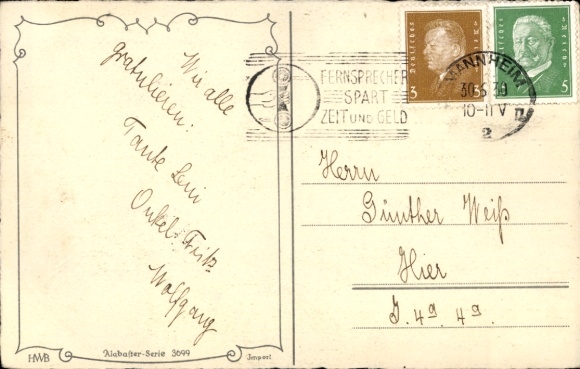 Wir alle
gratulieren:
Tante Leni
Onkel Fritz
Wolfgang
HWB
Alabaster-Serie 3699
Import
FERNSPRECHER
SPART
ZEIT UND GELD
MANNHEIM
30.6.30
10-11 V
2
Deutsches Reich
3
3
Deutsches Reich
5
Herrn
Günther Weiß
Hier
J. 4a. 4a.